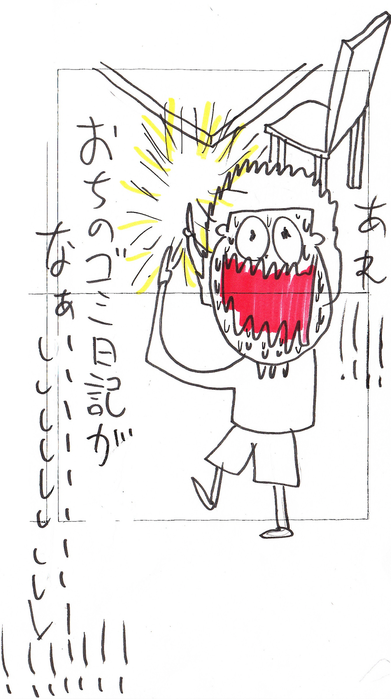 あれ!!!
おちのゴミ日記が
なぁいいいいいいいいい!!!!!!!